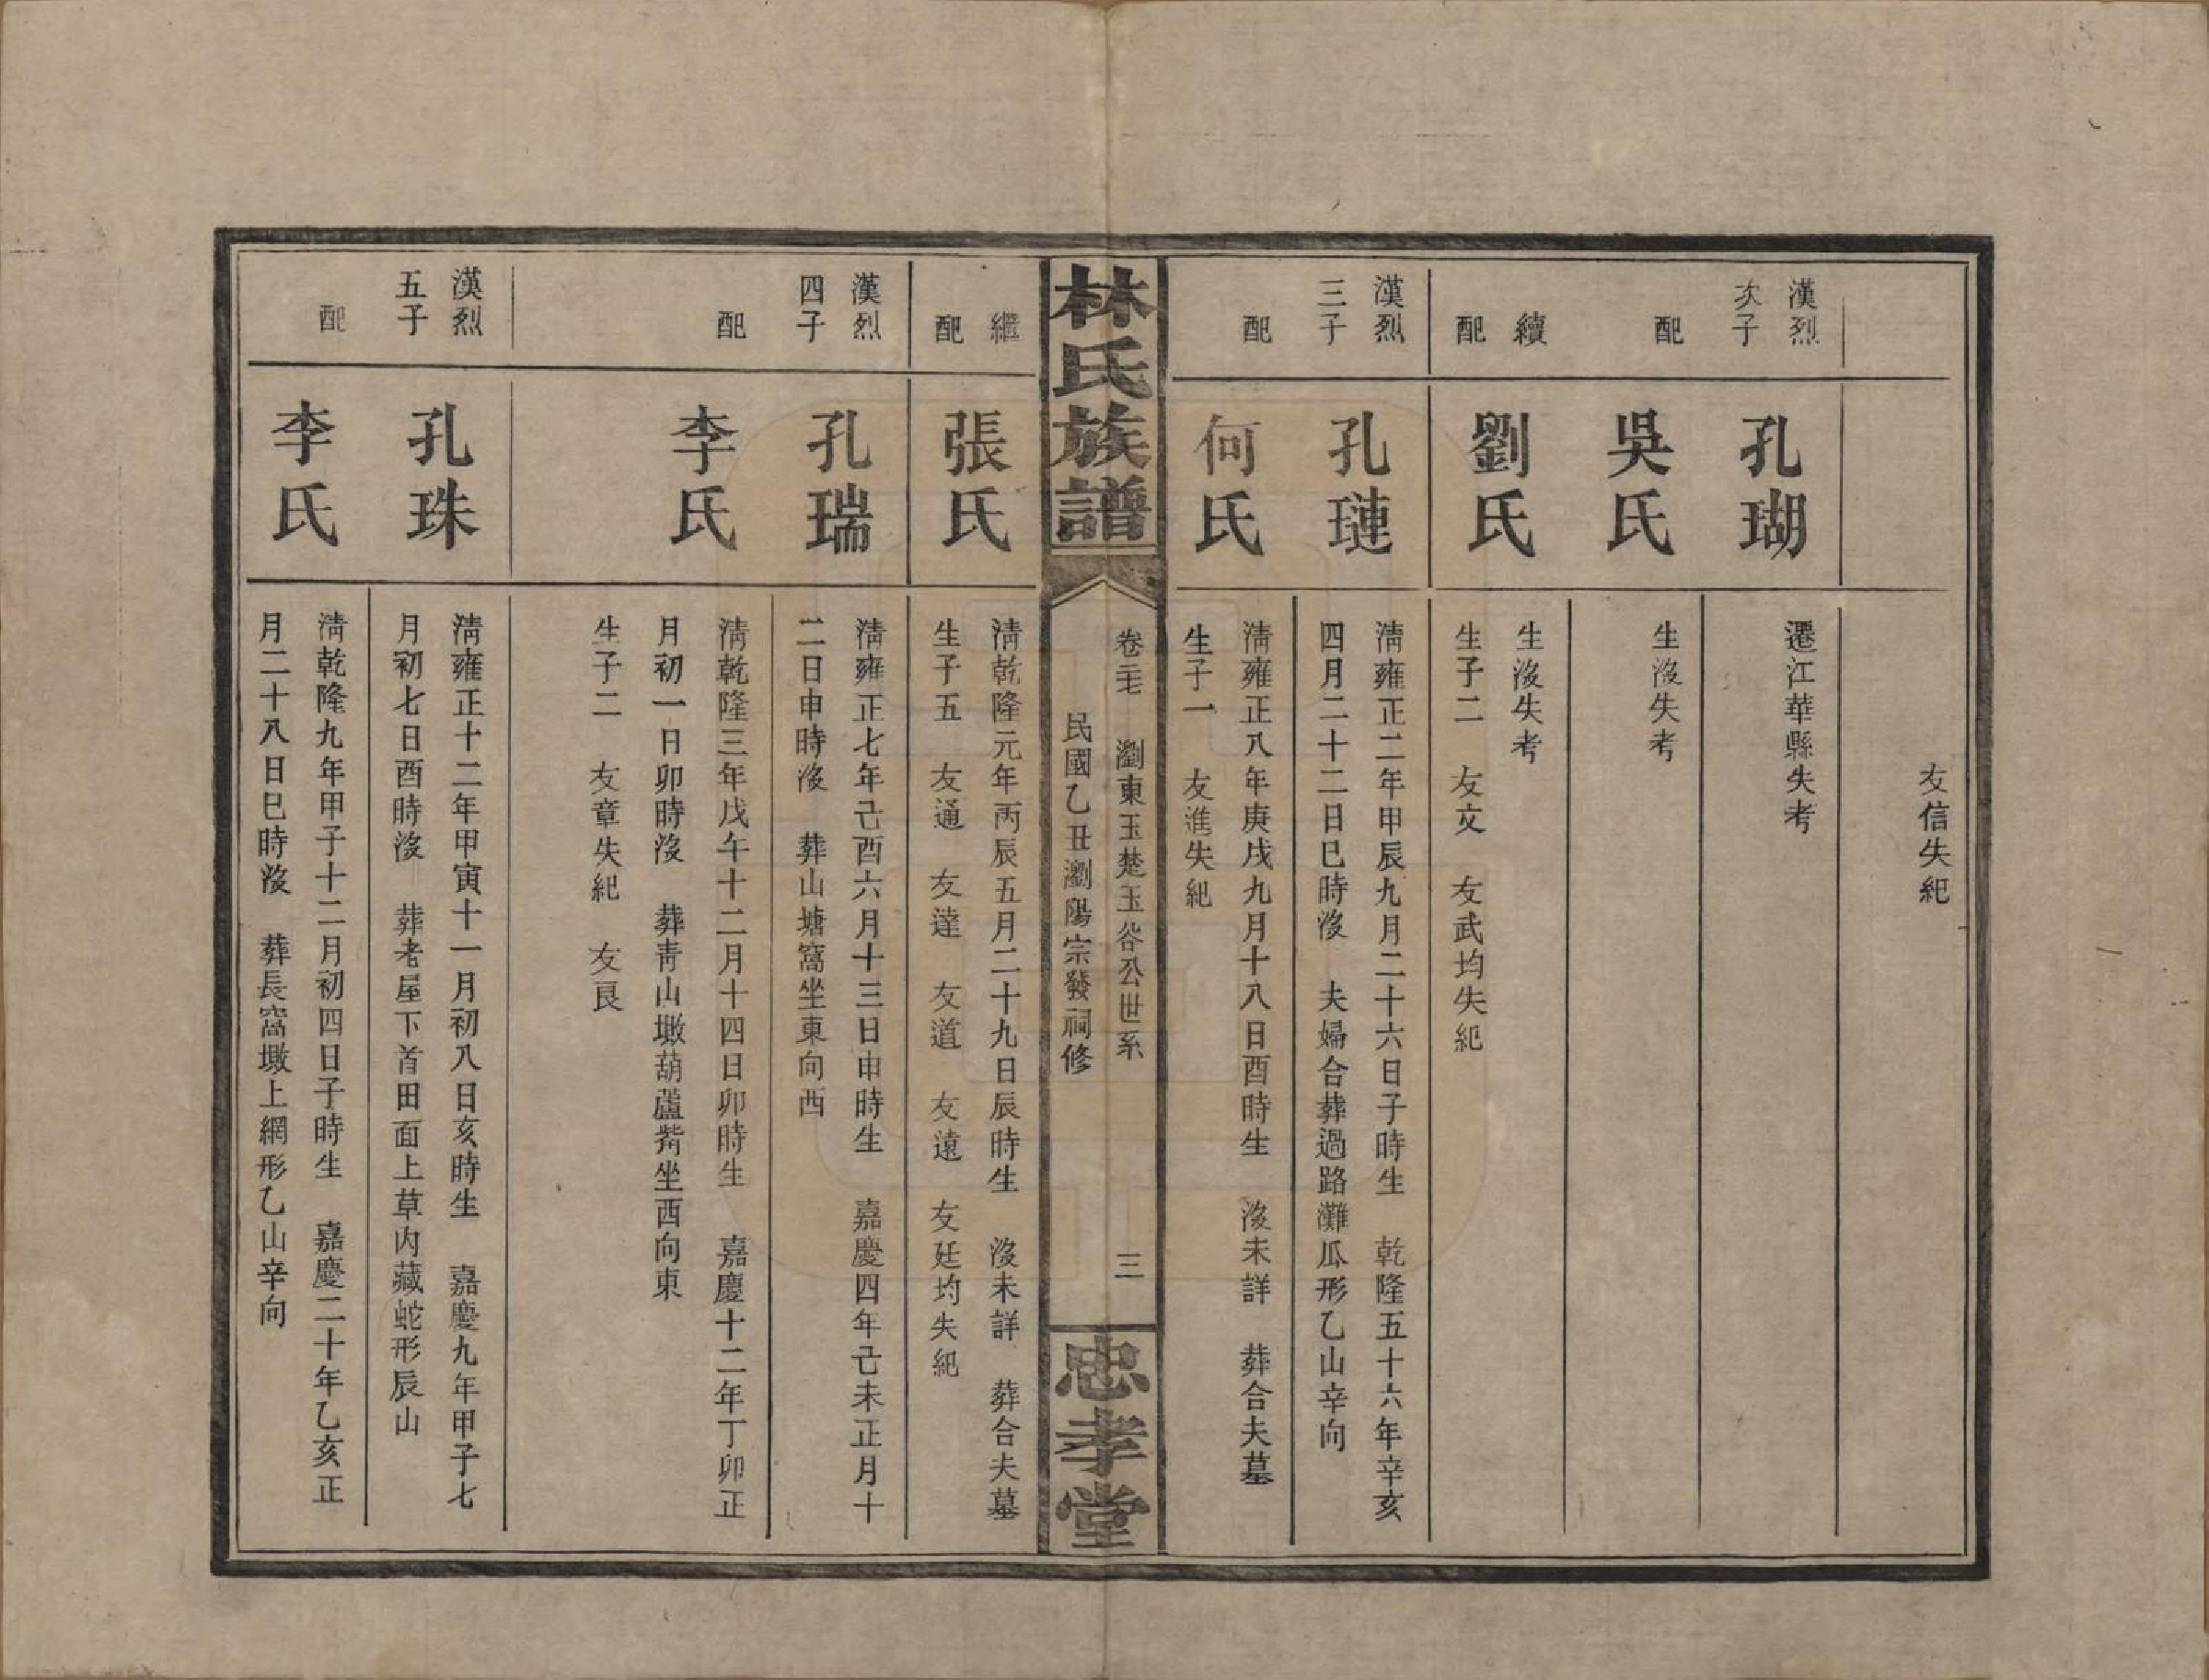 友信失紀
漢烈
次子
孔瑚
遷江華縣失考
配
吳氏
生沒失考
續
配
劉氏
生沒失考
生子二　友文　友武均失紀
漢烈
三子
孔璉
淸雍正二年甲辰九月二十六日子時生　乾隆五十六年辛亥
四月二十二日巳時沒　夫婦合葬過路灘瓜形乙山辛向
配
何氏
淸雍正八年庚戌九月十八日酉時生　沒未詳　葬合夫墓
生子一　友進失紀
林氏族譜
卷三七　瀏東玉楚玉谷公世系　三
民國乙丑瀏陽宗發祠修
忠孝堂
繼
配
張氏
淸乾隆元年丙辰五月二十九日辰時生　沒未詳　葬合夫墓
生子五　友通　友達　友道　友遠　友廷均失紀
漢烈
四子
孔瑞
淸雍正七年己酉六月十三日申時生　嘉慶四年己未正月十
二日申時沒　葬山塘窩坐東向西
配
李氏
淸乾隆三年戊午十二月十四日卯時生　嘉慶十二年丁卯正
月初一日卯時沒　葬靑山墩葫蘆觜坐西向東
生子二　友章失紀　友良
漢烈
五子
孔珠
淸雍正十二年甲寅十一月初八日亥時生　嘉慶九年甲子七
月初七日酉時沒　葬老屋下首田面上草內藏蛇形辰山
配
李氏
淸乾隆九年甲子十二月初四日子時生　嘉慶二十年乙亥正
月二十八日巳時沒　葬長窩墩上網形乙山辛向